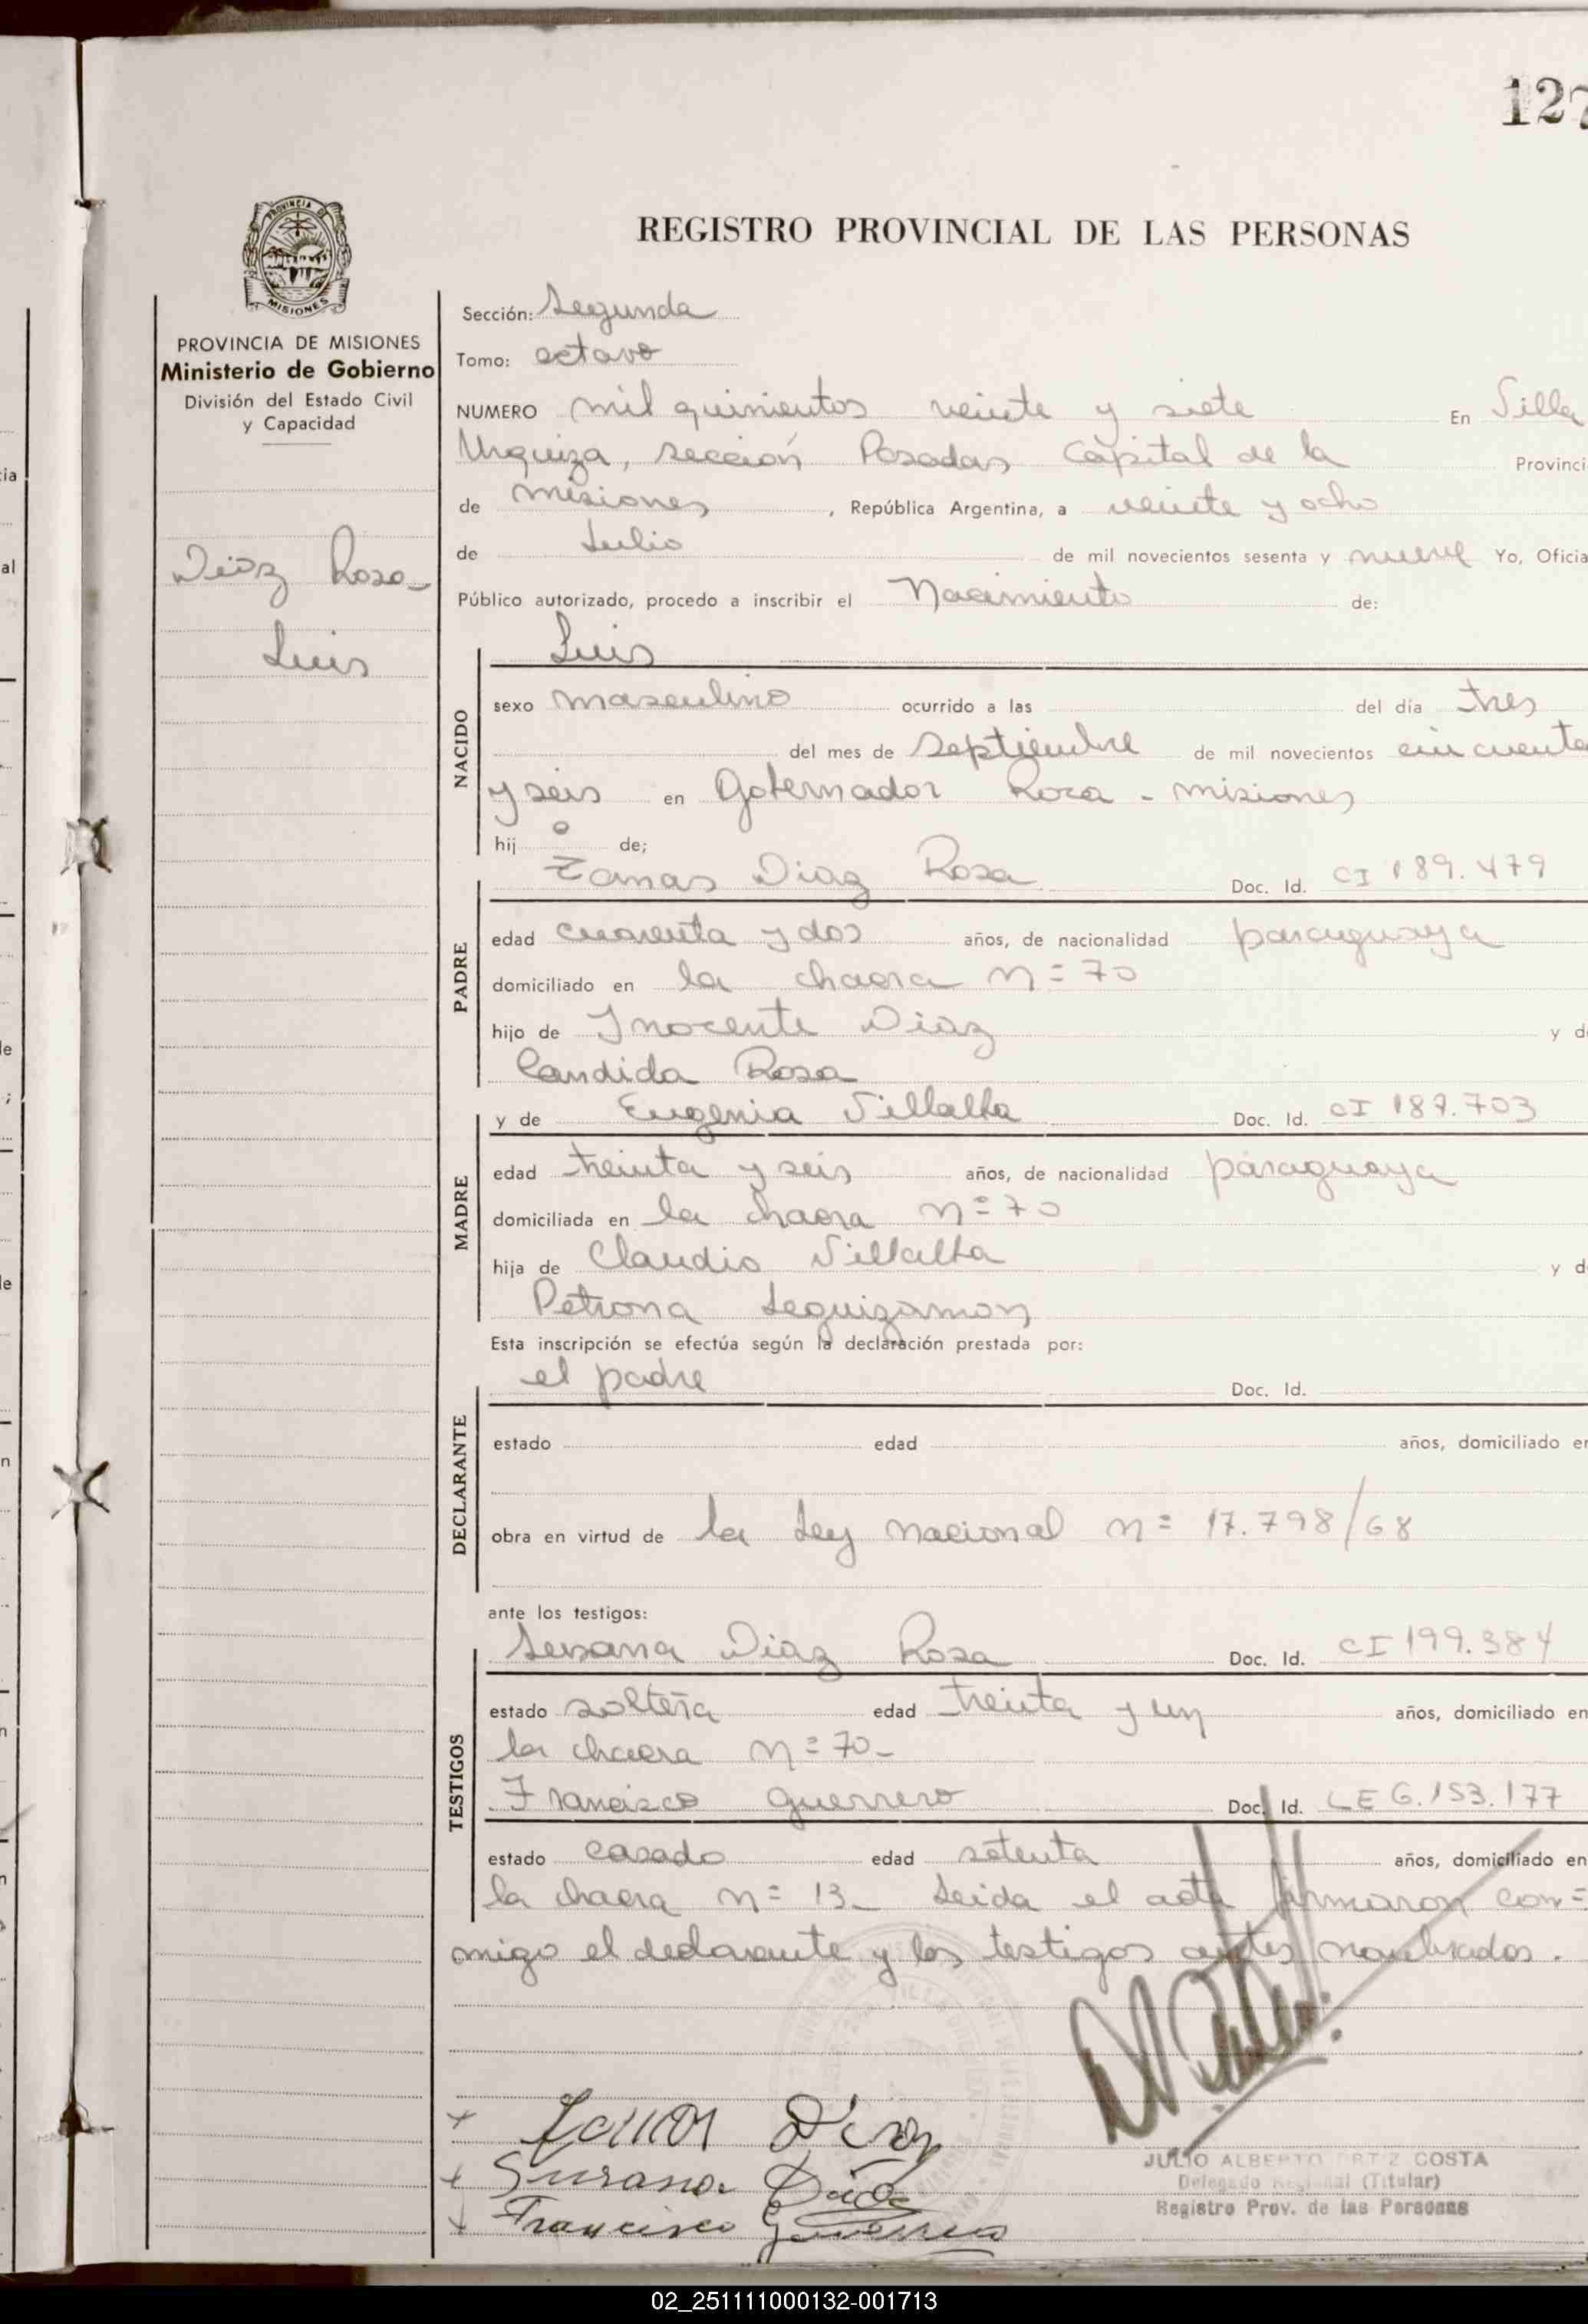 127
REGISTRO PROVINCIAL DE LAS PERSONAS
PROVINCIA DE MISIONES
MISIONES
PROVINCIA DE MISIONES
Ministerio de Gobierno
División del Estado Civil
y Capacidad
Diaz Rosa-
Luis
Sección: Segunda
Tomo: octavo
NUMERO mil quinientos veinte y siete En Villa
Urquiza, sección Posadas Capital de la Provinci
de misiones, República Argentina, a veinte y ocho
de Julio de mil novecientos sesenta y nueve Yo, Oficia
Público autorizado, procedo a inscribir el Nacimiento de:
NACIDO
Luis
sexo masculino ocurrido a las del día tres
del mes de septiembre de mil novecientos cincuenta
y seis en Gobernador Roca - misiones
hijo de;
PADRE
Tomas Diaz Rosa Doc. Id. CI 189.479
edad cuarenta y dos años, de nacionalidad paraguaya
domiciliado en la chacra n= 70
hijo de Inocente Diaz y d
Candida Rosa
MADRE
y de Eugenia Villalba Doc. Id. CI 187.703
edad treinta y seis años, de nacionalidad paraguaya
domiciliada en la chacra n= 70
hija de Claudio Villalba y d
Petrona Leguizamon
Esta inscripción se efectúa según la declaración prestada por:
DECLARANTE
el padre Doc. Id.
estado edad años, domiciliado en
obra en virtud de la Ley nacional n= 17.798/68
ante los testigos:
TESTIGOS
Susana Diaz Rosa Doc. Id. CI 199.384
estado soltera edad treinta y un años, domiciliado en
la chacra n= 70-
Francisco Guerrero Doc. Id. LE 6.153.177
estado casado edad setenta años, domiciliado en
la chacra n= 13_ Leida el acta firmaron con=
migo el declarante y los testigos antes nombrados.
Susana
Francisco Guerrero
JULIO ALBERTO ORTIZ COSTA
Delegado Regional (Titular)
Registro Prov. de las Personas
02_251111000132-001713